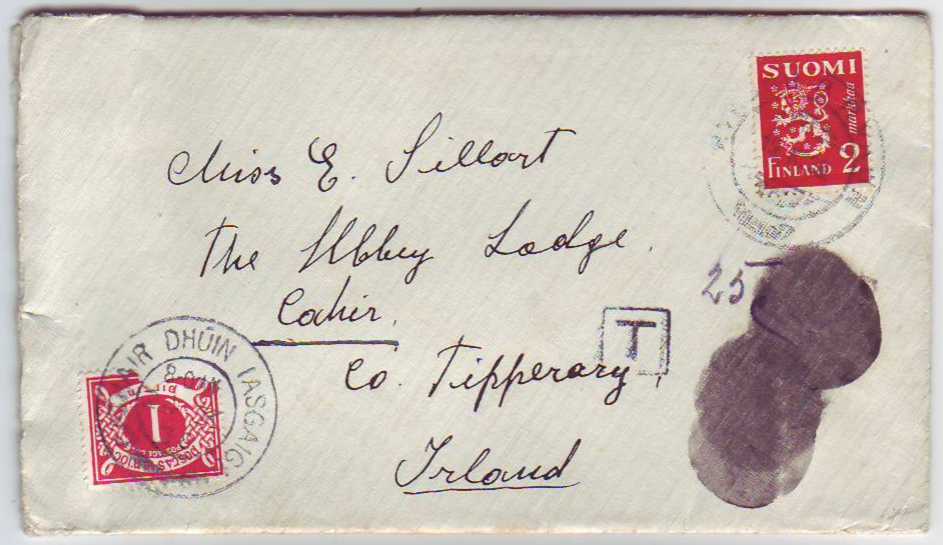 SUOMI
markkaa
2
FINLAND
Miss E. Sillart
The Abbey Lodge.
Cahir.
Co. Tipperary,
Irland
25
T
DHÚIN IASGAIG
8-
1
POSTAGE